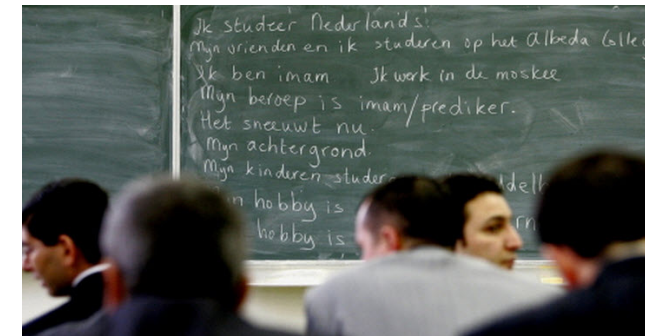 Ik studeer Nederlands!
Mijn vrienden en ik studeren op het Albeda Colle
Ik ben imam Ik werk in de moskee
Mijn beroep is imam/prediker.
Het sneeuwt nu.
Mijn achtergrond.
Mijn kinderen studer
hobby is
hobby is